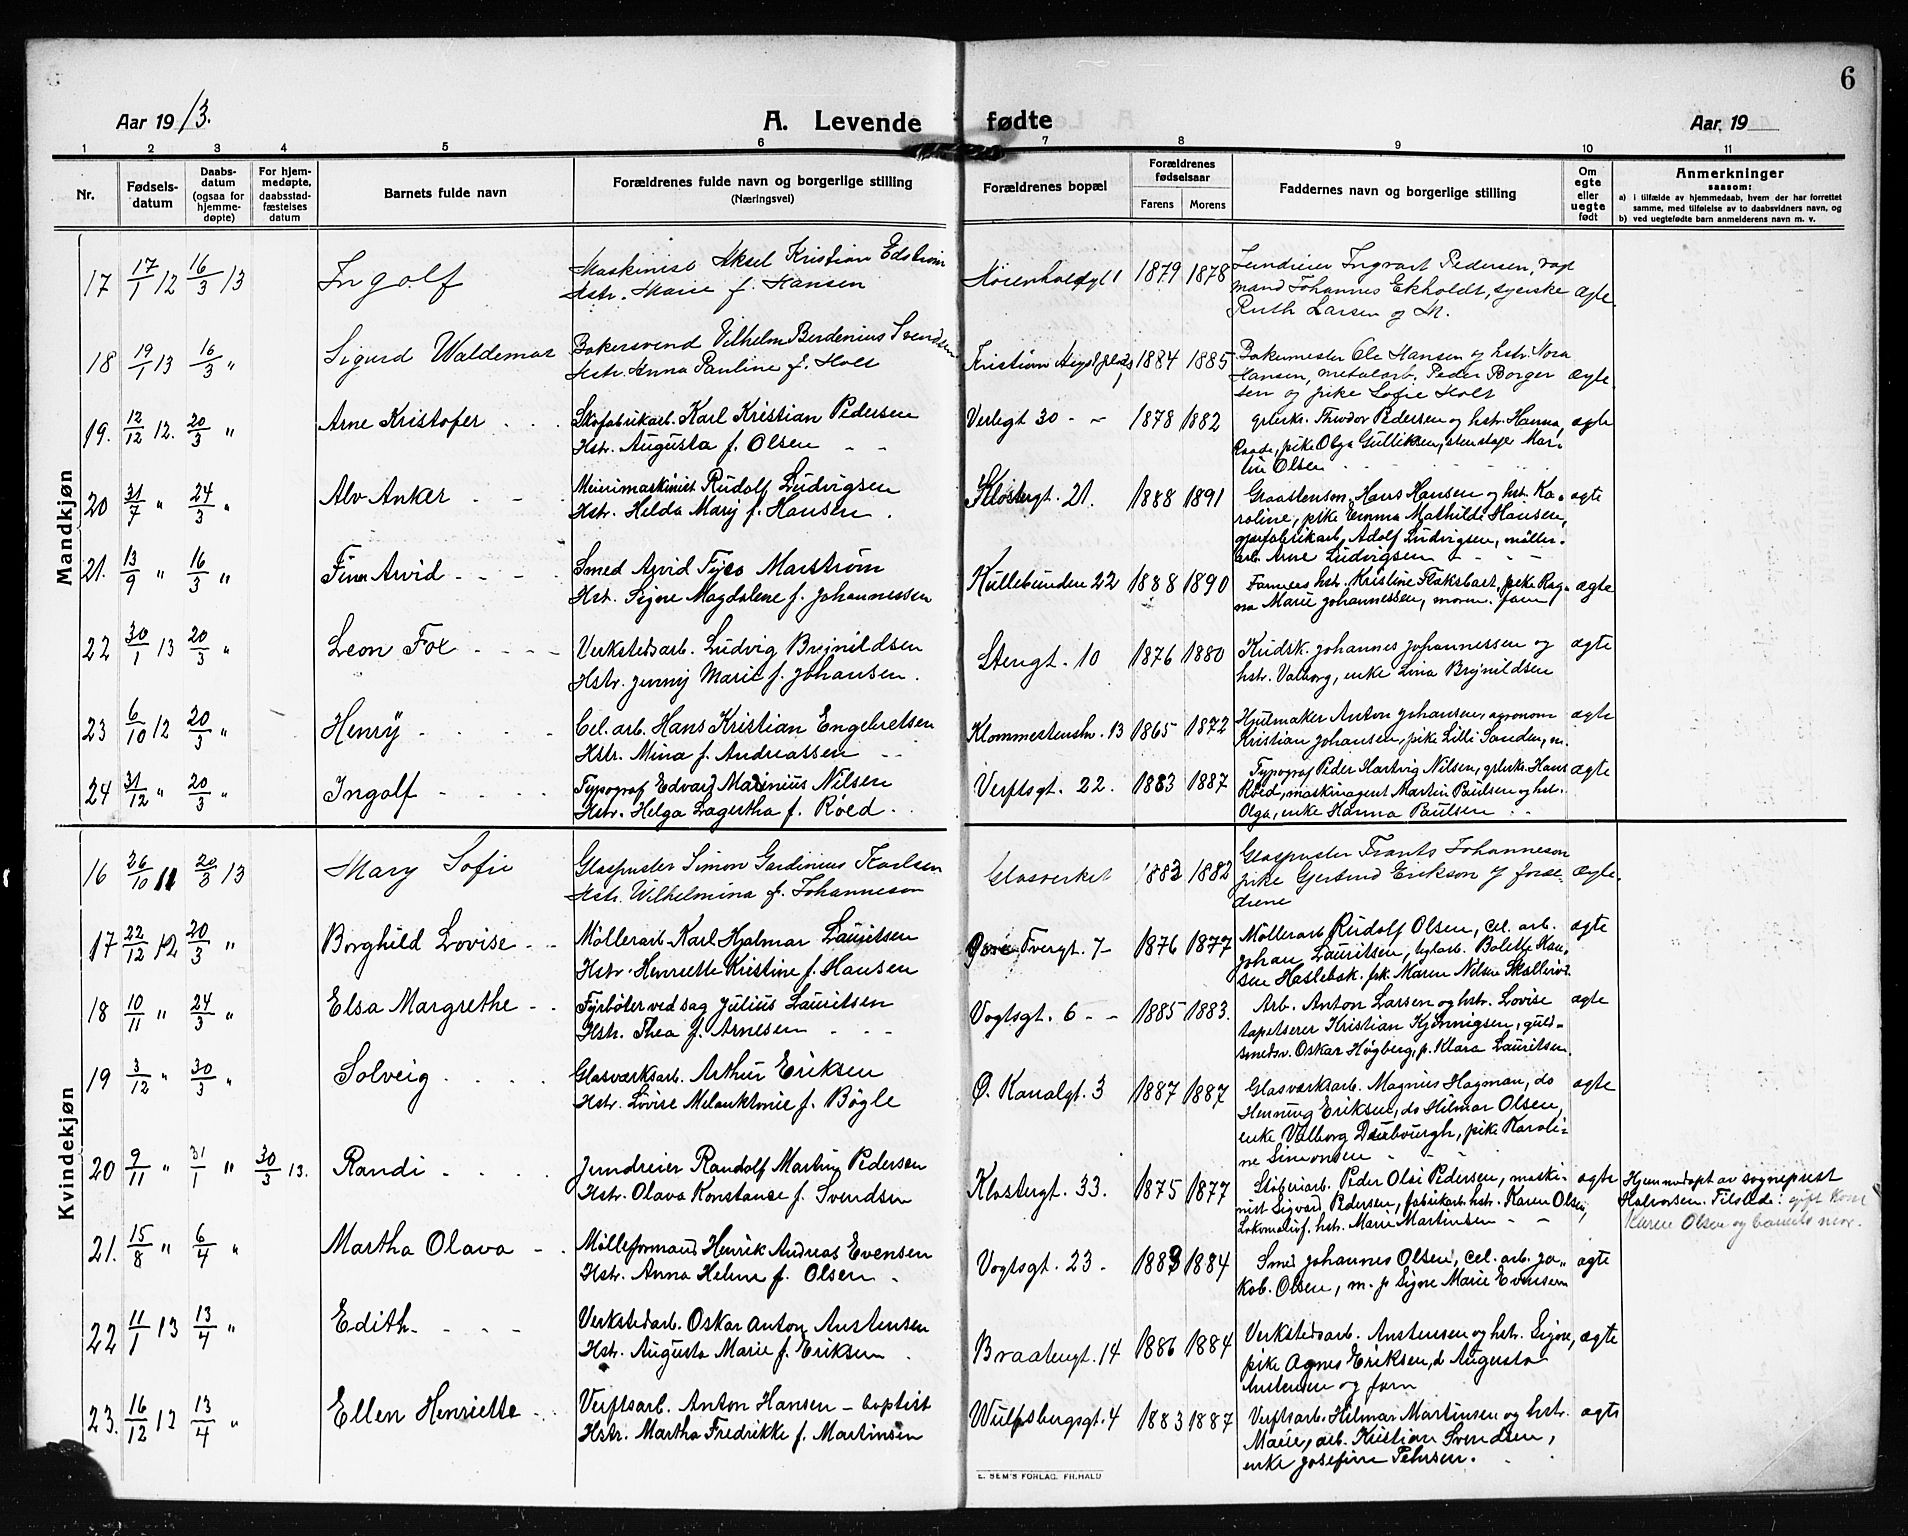 6
Aar 1913.
A. Levende fødte
Aar 19
1 2 3 4 5 6 7 8 9 10 11
Nr.
Fødsels-
datum
Daabs-
datum
(ogsaa for
hjemme-
døpte)
For hjem-
medøpte,
daabsstad-
fæstelses
datum
Barnets fulde navn
Forældrenes fulde navn og borgerlige stilling
(Næringsvei)
Forældrenes bopæl
Forældrenes
fødselsaar
Farens Morens
Faddernes navn og borgerlige stilling
Om
egte
eller
uegte
født
Anmerkninger
saasom:
a) i tilfælde av hjemmedaab, hvem der har forrettet
samme, med tilføielse av to daabsvidners navn, og
b) ved uegtefødte barn anmelderens navn m. v.
Mandkjøn
17 17/1 12 16/3 13 Ingolf
Maskinist Aksel Kristian Edstrøm
Hstr. Marie f. Hansen
1879 1878
Ingvart Pedersen,
mand Johannes Ekholdt, syerske
Ruth Larsen og M.
ægte
18 19/1 13 16/3 " Sigurd Waldemar
Bakersvend Vilhelm Berdenius Svendsen
Hstr. Anna Pauline f. Holt
1884 1885
Bakermester Ole Hansen og hstr. Nora
Hansen, metalarb. Peder Borger
sen og pike Sofie Holt
ægte
19. 12/12 12. 20/3 " Arne Kristofer
Skofabrikarb. Karl Kristian Pedersen
Hstr. Augusta f. Olsen
Verlegt 30
1878 1882
Theodor Pedersen og hstr. Hanna,
Raade, pike Olga Gulliksen, Mar-
tin Olsen
ægte
20 31/7 " 24/3 " Alv Anker
Meierimaskinist Rudolf Ludvigsen
Hstr. Helda Mary f. Hansen
Klostergt. 21.
1888 1891
Hans Hansen og hst. Ka-
roline, pike Emma Mathilde Hansen,
Adolf Ludvigsen, møller-
arb. Arne Ludvigsen
ægte
21. 13/9 " 16/3 " Finn Arvid
Smed Arvid Tyco Marstrøm
Hst. Signe Magdalene f. Johannessen
Kullebunden 22
1888 1890
hst. Kristine Flaksbart, pike Rag-
na Marie Johannessen, moren. faren
ægte
22 30/1 13 20/3 " Leon Fox
Verkstedsarb. Ludvig Brynildsen
Hstr. Jenny Marie f. Johansen.
Stengt. 10
1876 1880
Kudsk. Johannes Johannessen og
hstr. Valborg, enke Lina Brynildsen
ægte
23 6/10 12 20/3 " Henry
Cel. arb. Hans Kristian Engebretsen
Hstr. Mina f. Andreassen
Klommestenshv. 13
1865 1872
Hjulmaker Anton Johansen, agronom
Kristian Johansen, pike Lilli Sanden, m.
ægte
24 31/12 " 20/3 " Ingolf
Typograf Edvard Marinius Nilsen
Hstr. Helga Lagertha f. Røed
Verftsgt. 22.
1883 1887
Typograf Peder Hartvig Nilsen, Hans
Røed, maskinagent Martin Paulsen og hst.
Olga, enke Hanna Paulsen
ægte
Kvindekjøn
16 26/10 11 20/3 13 Mary Sofie
Glaspuster Simon Gardinius Karlsen
Hstr. Wilhelmina f. Johanneson
Glasverket
1883 1882
Glaspuster Frants Johanneson
pike Gertrud Erikson og foræl-
drene
ægte.
17 22/12 12 20/3 " Borghild Lovise
Møllerarb. Karl Hjalmar Lauritsen
Hstr. Henriette Kristine f. Hansen
Tvergt. 7
1876 1877
Møllerarb Rudolf Olsen, cel. arb.
Johan Lauritsen, Bolette Han-
sen Haslebak. pk. Maren Nilsen
ægte
18 10/11 " 24/3 " Elsa Margrethe
Fyrbøter ved sag Julius Lauritsen
Hstr. Thea f. Arnesen
Vogtsgt. 6
1885 1883.
Arb. Anton Larsen og hstr. Lovise
tapetserer Kristian Kjønnigsen, guld-
smedsv. Oskar Høgberg, p. Klara Lauritsen.
ægte
19 3/12 " 30/3 " Solveig
Glasværksarb. Arthur Eriksen
Hstr. Lovise Melanktonie f. Bøgle
Ø. Kanalgt. 3
1887 1887
Glasværksarb. Magnus Hagman, do
Henning Eriksen, do Hilmar Olsen,
enke Valborg pike Karoli-
ne Simonsen
ægte
20 9/11 " 31/1 " 30/3 13. Randi
Jerndreier Randolf Martin Pedersen
Hstr. Olava Konstanse f. Svendsen
Klostergt. 33.
1875 1877
Støberiarb. Peder Olsi Pedersen, maski-
nist Sigvard Pedersen, fabrikarb. hstr. Karen Olsen,
Lokomotivf. hstr. Marie Martinsen
ægte
Hjemmedøpt av sogneprest
Halvorsen. Tilstede: gift kone
Karen Olsen og barnets mor.
21. 15/8 " 6/4 " Martha Olava
Mølleformand Henrik Andreas Evensen
Hstr. Anna Helene f. Olsen
Vogtsgt. 23
1883 1884
Smed Johannes Olsen, cel. arb. Ja-
kob. Olsen, m. p Signe Marie Evensen
ægte
22 11/1 13 13/4 " Edith
Verkstedarb. Oskar Anton Anstensen
Hstr. Augusta Marie f. Eriksen
Braatengt. 14
1886 1884
Verkstedsarb. Anstensen og hstr. Signe,
pike Agnes Eriksen, d Augusta
Anstensen og faren
ægte
23. 16/12 12 13/4 " Ellen Henriette
Verftsarb. Anton Hansen – baptist
Hstr. Martha Fredrikke f. Martinsen
Wulfsbergsgt. 4
1883 1887
Verftsarb. Hilmar Martinsen og hstr.
Marie, arb. Kristian Svendsen,
enke Josefine Pettersen.
ægte
E. SEM'S FORLAG. FR.HALD